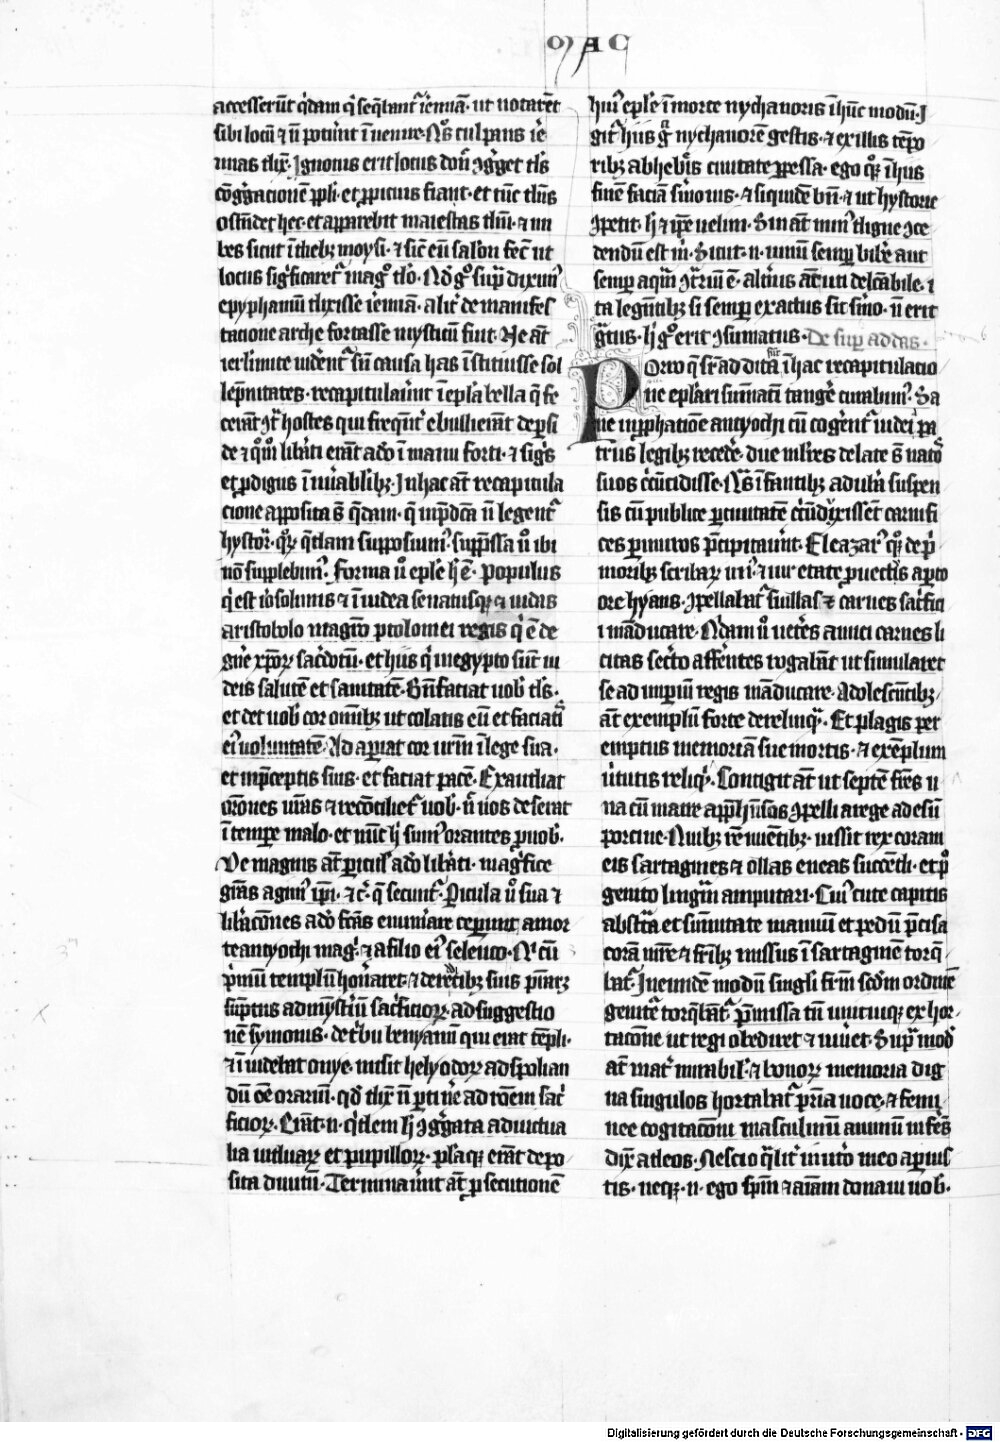 MAC
accesserūt q̇dam q̇ seq̄bant᷑ ieremiā· ut notarēt
sibi locū ⁊ n̄ potuer̄t īvenire· Q̄s culpans ie
remias dix̄· Ignotus erit locus donec ꝯg̃get de᷒
cōg̃gacionē ppl̄i· et ꝓpicius fiant· et tūc dn̄s
ostēdet hec· et apparebit maiestas dn̄i· ⁊ nu
bes sicut
locus
epyphaniū dixisse ieremiā· alit̾ de manifes
tacione arche fortasse mysticū fuit·
has īstituisse sol
lēpnitates· recapitulauer̄t ī epl̄a bella q̄ fe
cerāt ꝯt̃ hostes qui freq̄nt̾ ebullierāt de ꝑsi
de ⁊ liƀati erāt a dn̄o ī manu forti· ⁊ sig̃s
et ꝓdigiis In hac āt recapitula
cione apposita s̄t q̄dam· q̄ in p̄dcā n̄ legent᷑
hystor̃· q̄dam supposuim᷒· sup̄pssa ū ibi
nō supplebim᷒. Forma ū epl̄e h̄ ē· Populus
q̇ est iherosolimis ⁊ ī iudea senatusq; ⁊ iudas
aristobolo magr̄o ptolomei regis q̇ ē de
gn̄e xp̄orꝝ sac̾dotū· et hiis q̇ in egypto sūt iu
deis salutē et sanitatē· Bn̄faciat uoƀ de᷒·
et det uoƀ cor om̄ibꝫ ut colatis eū et faciatis
ei᷒ voluntatē· Adaperiat cor ur̄m ī lege sua·
et in p̄ceptis suis· et faciat pacē· Exaudiat
orōnes ur̄as ⁊ recōcilietur uoƀ· n̄ uos deserat
ī tempore malo· et nūc h̄ sum᷒ orantes ꝓ uoƀ·
De magnis āt ꝑiculis a dō liƀati· mag̃fice
gr̄as agim᷒ ip̄i· ⁊c̃· q̄ secunt᷑· Pericula ū sua ⁊
liƀacōnes a dō fc̄as enumerare ceperunt a mor
te antyochi mag̃· ⁊ a filio ei᷒ seleuco· Q̇ cū
p̃mū templū honoraret· ⁊ de redditibꝫ suis
sūptus ad mīst̾iū sac̃ficiorꝝ· ad suggestio
nē symonis· de tribu benyamī qui erat tēpli·
⁊ īuidebat onye· misit helyodorꝝ ad spolian
dū
ficiorꝝ· Erāt· n· q̇dem h̄ ꝯg̃gata ad uictua
lia uiduarꝝ et pupillorꝝ· erāt depo
sita diuitū· Terminauer̄t āt ꝑsecutionē
hui᷒ epl̄e ī morte nychanoris ī hūc modū· I
git̾ hiis g̃ nychanorē gestis· ⁊ ex illis tēpo
ribꝫ ab hebreis ciuitate possessa· ego q̊q; ī hiis
finē faciā sermonis· ⁊ siquidē bn̄· ⁊ ut hystorie
ꝯpetit· h̄ ⁊ ip̄e uelim· Sin āt min᷒ digne ꝯce
dendū est m̃· Sicut· n· uinū semꝑ biƀe aut
semꝑ aquā ꝯt̃riū ē· alt̾nis āt uti delectabile· i
ta legentibꝫ si semꝑ exactus sit sermo· n̄ erit
gr̃tus· h̄ ḡ erit ꝯsumatus· De suꝑ additis·
Porro q̄ sr̃ addita sūt ī hac recapitulacio
ne epl̄ari sūmati tangere curabim᷒· Sa
ne in ꝓphanatiōe antyochi cū cogerent᷑ iudei pa
triis legibꝫ recede᷑· due mul̾es delate s̄t natos
suos circūcidisse· Q̄s īfantibꝫ ad uƀa suspen
sis cū publice ꝑ ciuitatē circūduxissēt carnifi
ces ꝑ muros p̄cipitauer̄t· Eleazar᷒ q̊q; de p̃
moribꝫ scribarꝝ uir᷒· ⁊ uir etate ꝓuectus aperto
ore hyans· ꝯpellabat᷑ suillas ⁊ carnes sac̃fici
i māducare· Q̇dam ū uet̾es amici carnes li
citas sec̾to affer̄tes rogabāt ut simularet
se ad imꝑiū regis māducare· Adolescētibꝫ
āt exemplū forte derelinq̄r· Et plagis per
emptus memoriā sue mortis· ⁊ exēplum
ūtutis reliq̇t· Contigit āt ut septē fr̄es u
na cū matre app̄hēsos ꝯpelli a rege ad esū
porcine· Quibꝫ rēnuentibꝫ· iussit rex coram
eis sartagines ⁊ ollas eneas succēdi· et p̃
genito linguam amputari· Cui᷒ cute capitis
abstracta et sūmitate manuū et pedū p̄cisa
corā mr̄e ⁊ fr̄ibꝫ missus ī sartaginē torq̄
bat᷑· In eundē modū singl̄i fr̄m scdm ordinē
genite᷑ torq̄bāt᷑· p̄missa tn̄ uniuniq; exhor
tacōne ut regi obediret ⁊ uiuet· Supra modū
āt mat̾ mirabil̾· ⁊ bonorꝝ memoria dig
na singulos hortabat᷑ pr̄ia uoce· ⁊ femī
nee cogitacōni masculinū animū inserēs
dix̄ ad eos· Nescio q̄lit̾ in utero meo apparuis
tis· neq;· n· ego spm̄ ⁊ aīam donaui uoƀ·
Digitalisierung gefördert durch die Deutsche Forschungsgemeinschaft - DFG